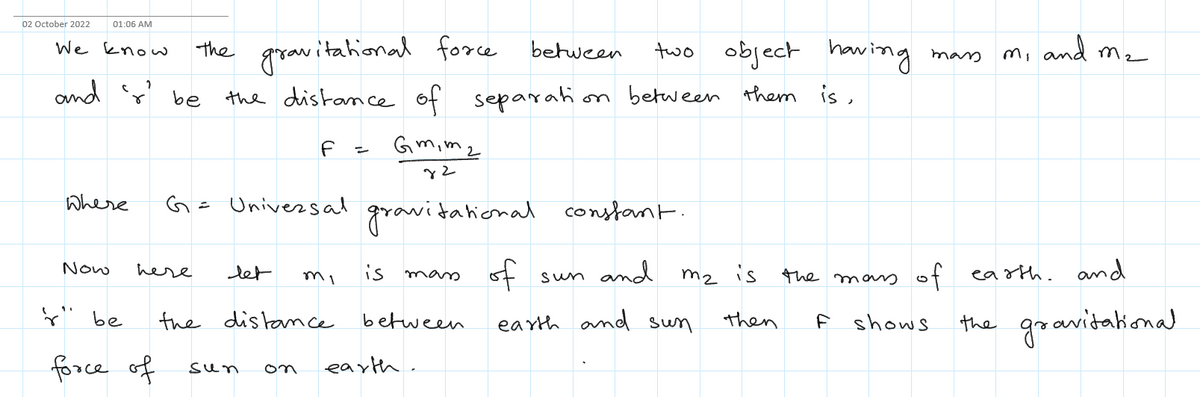 02 October 2022 01:06 AM
We know the gravitational force between two object having mass m₁ and m₂
and 'r' be the distance of separation between them is,
F = Gm₁m₂
r²
Where G = Universal gravitational constant.
Now here let m₁ is mass of sun and m₂ is the mass of earth. and
'r" be the distance between earth and sun then F shows the gravitational
force of sun on earth.